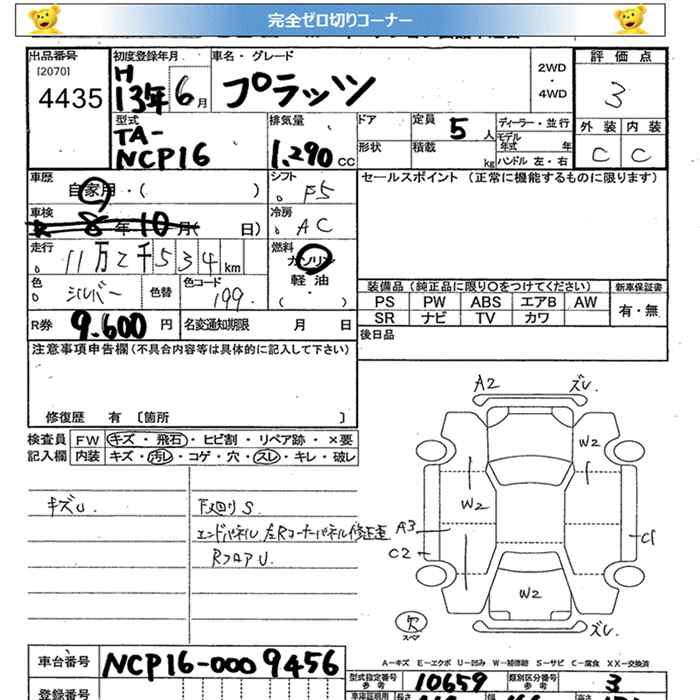 完全ゼロ切りコーナー
出品番号 初度登録年月 車名・グレード 2WD・4WD 評価点
[2070]
4435 H13年6月 プラッツ 3
型式 排気量 ドア 定員 5人 ディーラー・並行 外装 内装
TA-NCP16 1.290 CC 形状 積載 kg モデル年式 年 C C
ハンドル 左・右
車歴 自家用・( ) シフト F5 セールスポイント (正常に機能するものに限ります)
車検 8年10月( 日) 冷房 AC
走行 11万2千534km 燃料 ガソリン
軽油
( ・ )
色 シルバー 色替 色コード 199
装備品 (純正品に限り〇をつけてください) 新車保証書
PS PW ABS エアB AW 有・無
SR ナビ TV カワ
R券 9.600円 名変通知期限 月 日 後日品
注意事項申告欄(不具合内容等は具体的に記入して下さい)
修復歴 有 [箇所 ]
検査員 FW キズ・飛石・ヒビ割・リペア跡・×要
記入欄 内装 キズ・汚レ・コゲ・穴・スレ・キレ・破レ
キズU 下廻りS
エンドパネル 左Rコーナーパネル修正歪
RフロアU.
A2 ズレ
W2
W2
A3
C2 C1
W2
欠
スペア
ズレ
A-キズ E-エクボ U-凹み W-補修跡 S-サビ C-腐食 XX-交換済
車台番号 NCP16-0009456 型式指定番号 参考 10659 類別区分番号 参考 3
登録番号 車庫証明用 長さ 幅 高さ